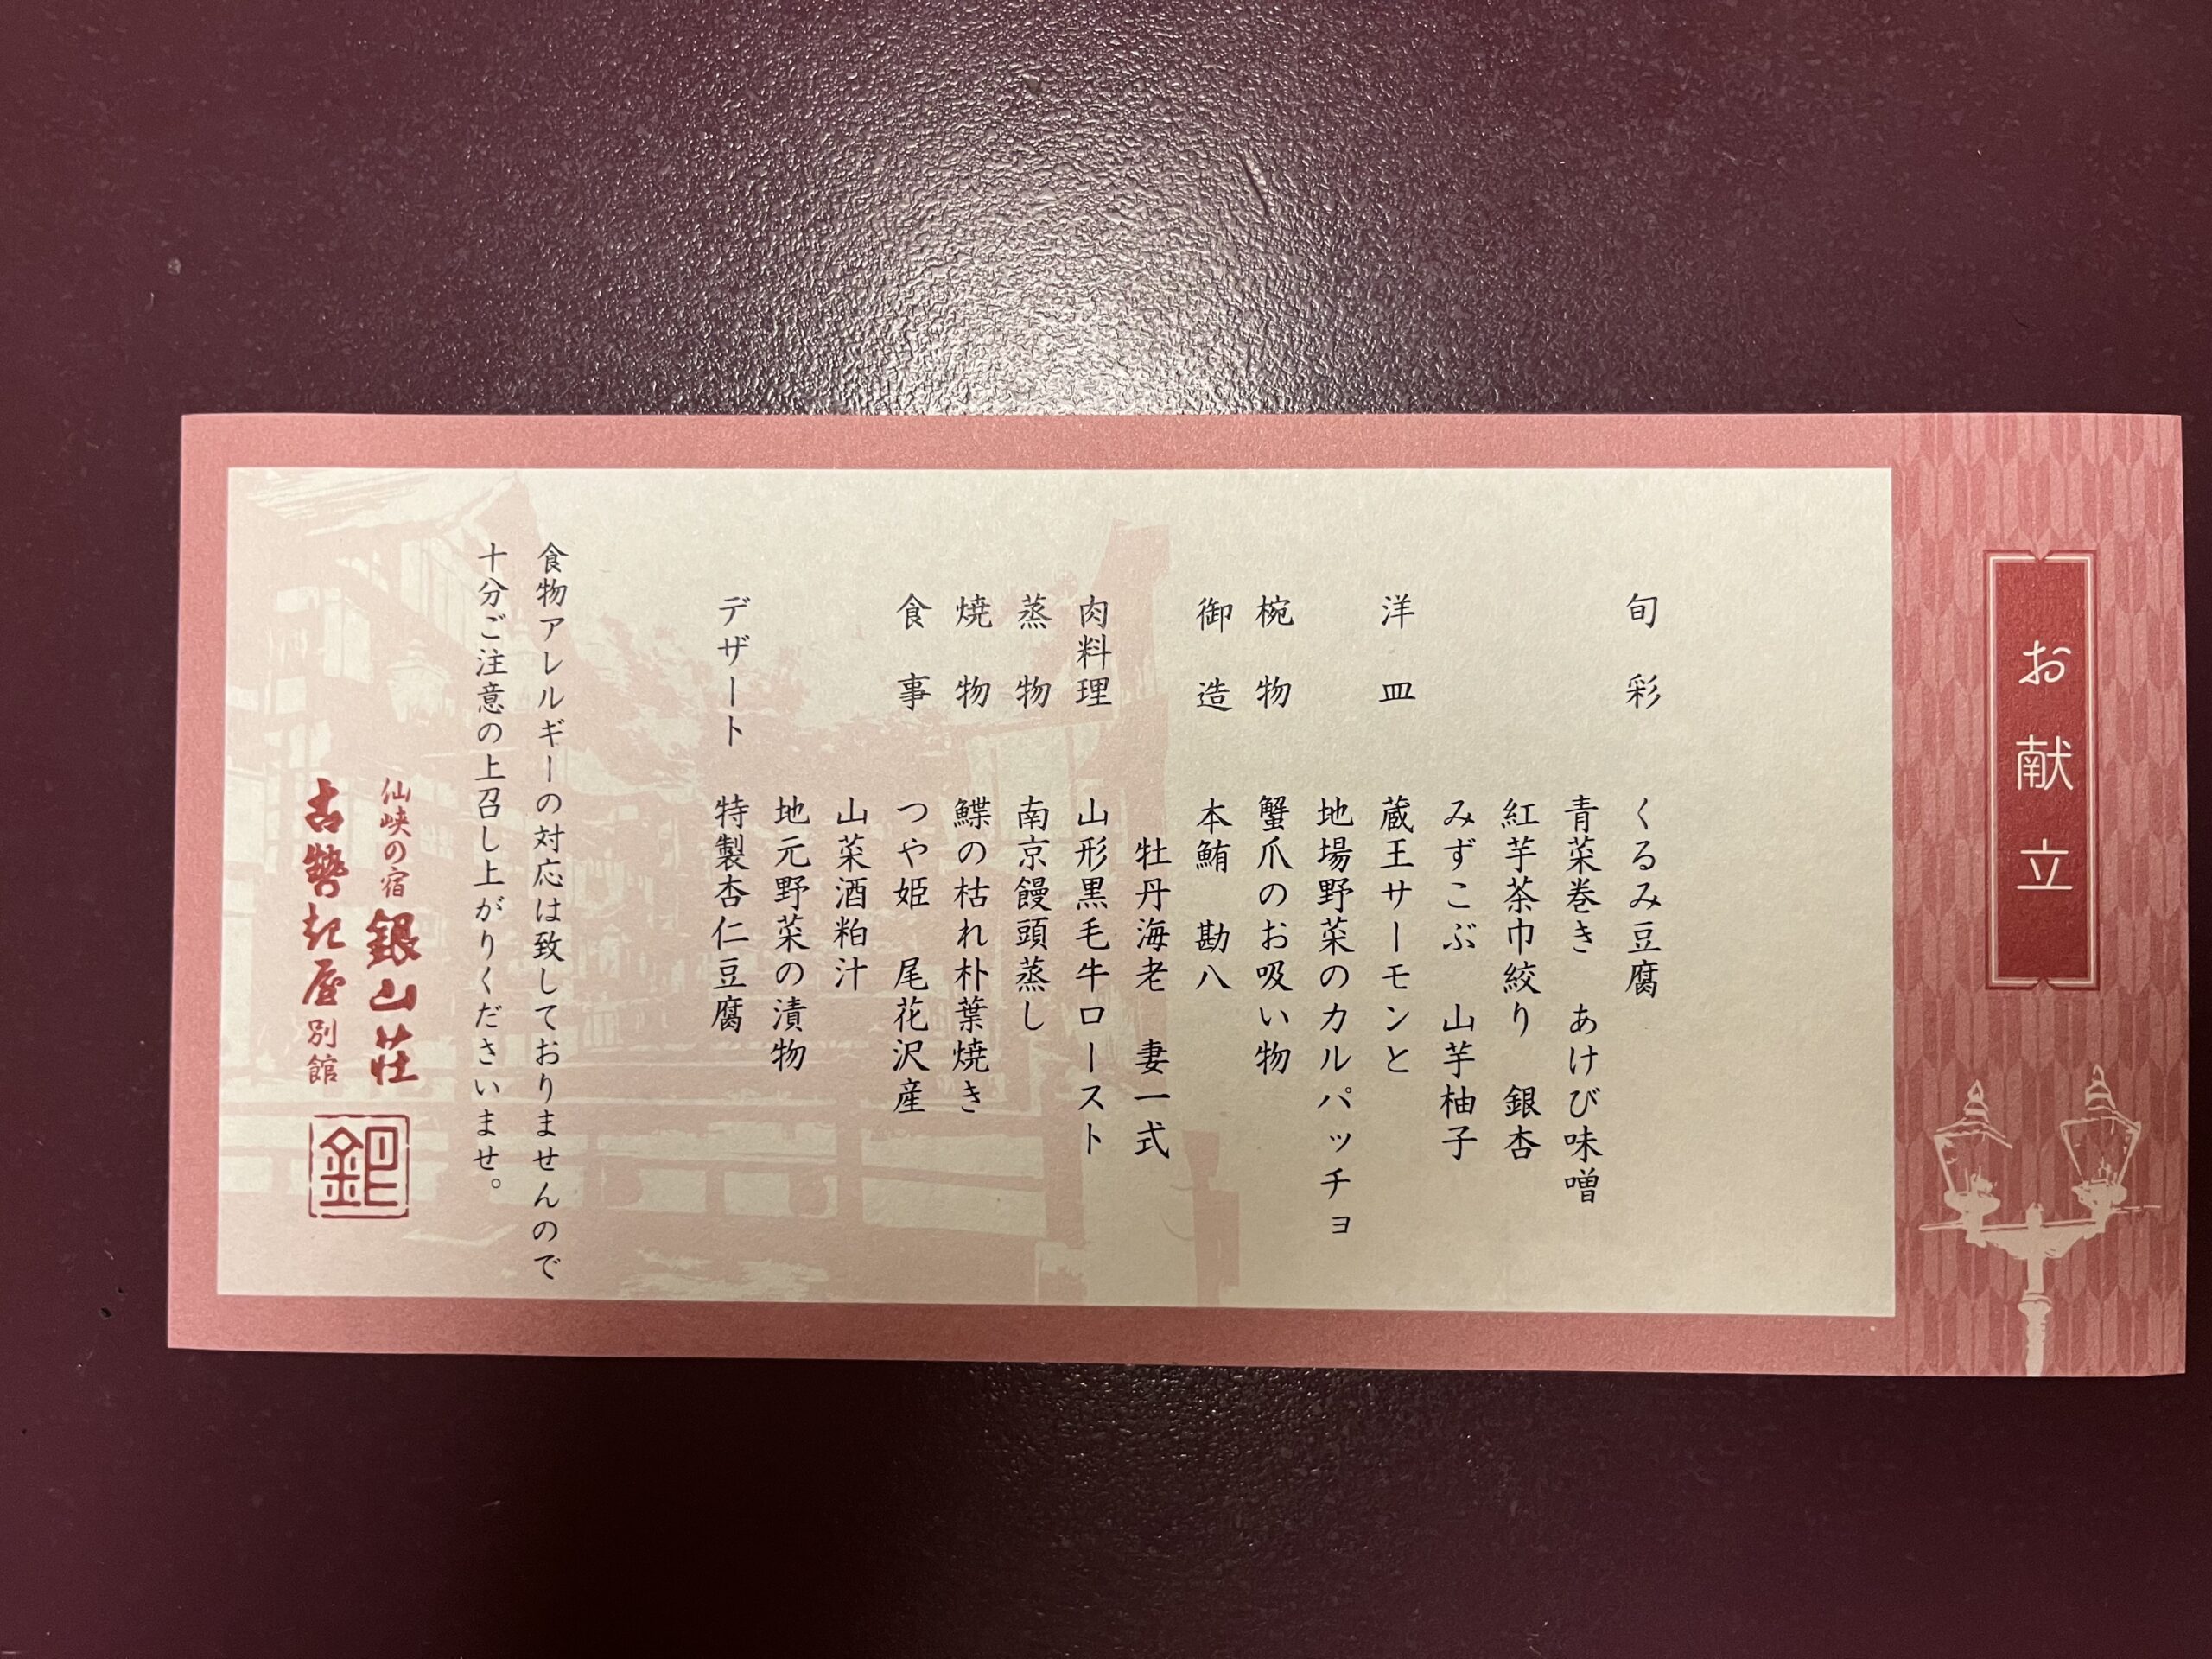 お献立
旬彩　くるみ豆腐
青菜巻き　あけび味噌
紅芋茶巾絞り　銀杏
みずこぶ　山芋柚子
洋皿　蔵王サーモンと
地場野菜のカルパッチョ
椀物　蟹爪のお吸い物
御造　本鮪　勘八
牡丹海老　妻一式
肉料理　山形黒毛牛ロースト
蒸物　南京饅頭蒸し
焼物　鰈の枯れ朴葉焼き
食事　つや姫　尾花沢産
山菜酒粕汁
地元野菜の漬物
デザート　特製杏仁豆腐
食物アレルギーの対応は致しておりませんので
十分ご注意の上召し上がりくださいませ。
仙峡の宿　銀山荘
古勢起屋別館
銀